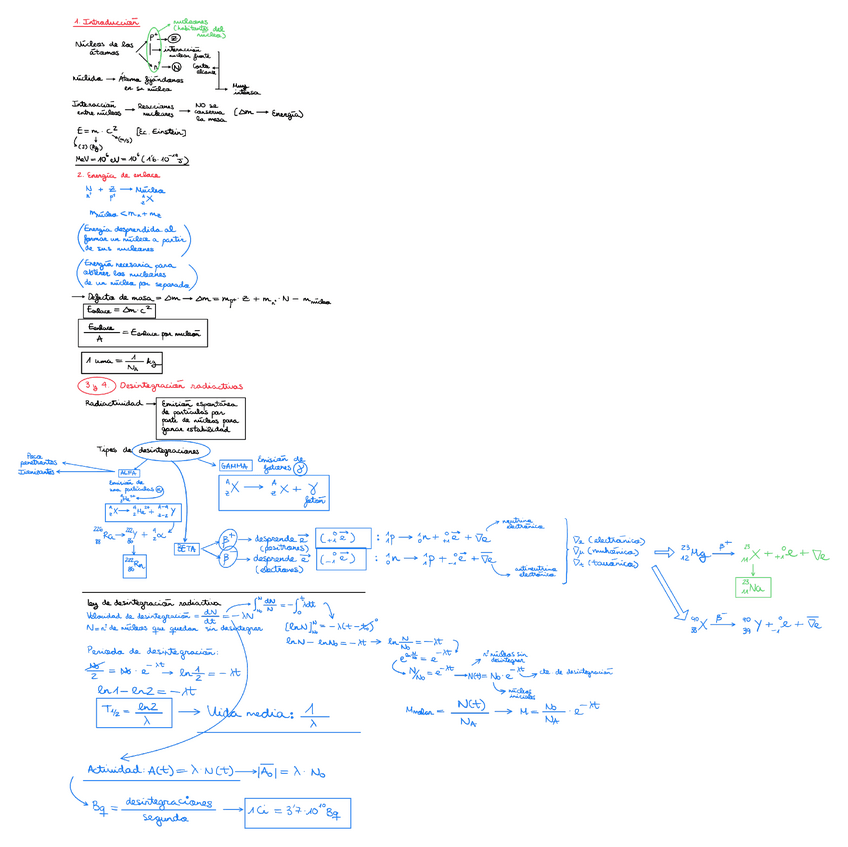 1. Introducción
nucleones
(habitantes del
núcleo)
Núcleos de los
átomos
p⁺ → Z
interacción
nuclear fuerte
n° → N
Corto
alcance
Muy
intensa
Núclido → Átomo fijándonos
en su núcleo
Interacción
entre núcleos → Reacciones
nucleares → NO se
conserva
la masa (Δm → Energía)
E = m · c² [Ec. Einstein]
(J) (kg) (m/s)
MeV = 10⁶ eV = 10⁶ (1'6 · 10⁻¹⁹ J)
2. Energía de enlace
N + Z → Núcleo
n° p⁺ ᴬ_Z X
m núcleo < mₙ + m_z
(Energía desprendida al
formar un núcleo a partir
de sus nucleones)
(Energía necesaria para
obtener los nucleones
de un núcleo por separado)
→ Defecto de masa = Δm → Δm = m_p⁺ · Z + m_n° · N − m núcleo
Eenlace = Δm · c²
Eenlace / A = Eenlace por nucleón
1 uma = 1/N_A kg
3 y 4. Desintegración radiactivas
Radiactividad → Emisión espontánea
de partículas por
parte de núcleos para
ganar estabilidad
Tipos de desintegraciones
Poco
penetrantes
Ionizantes
ALFA
Emisión de
una partículas α
⁴₂He²⁺
ᴬ_Z X → ⁴₂He²⁺ + ᴬ⁻⁴_Z₋₂ Y
²²⁶₈₈Ra → ²²²₈₆Y + ⁴₂α
²²²₈₆Rn
GAMMA
Emisión de
fotones γ
ᴬ_Z X → ᴬ_Z X + γ
fotón
BETA
β⁺ → desprende e⁺ (⁰₊₁e⁺) : ¹₁p → ¹₀n + ⁰₊₁e⁺ + νe
(positrones)
neutrino
electrónico
β⁻ → desprende e⁻ (⁰₋₁e⁻) : ¹₀n → ¹₁p + ⁰₋₁e⁻ + ν̄e
(electrones)
antineutrino
electrónico
νe (electrónico)
νμ (muónico)
ντ (tauónico)
²³₁₂Mg β⁺→ ²³₁₁X + ⁰₊₁e + νe
²³₁₁Na
⁹⁰₃₈X β⁻→ ⁹⁰₃₉Y + ⁰₋₁e + ν̄e
Ley de desintegración radiactiva
Velocidad de desintegración = dN/dt = −λN
N = n° de núcleos que quedan sin desintegrar
∫_N₀^N dN/N = −∫_0^t λdt
[ln N]_N₀^N = −λ(t − t₀)⁰
ln N − ln N₀ = −λt → ln N/N₀ = −λt
e^(ln N/N₀) = e^(−λt)
N/N₀ = e^(−λt) → N(t) = N₀ · e^(−λt)
n° núcleos sin
desintegrar
cte de desintegración
núcleos
iniciales
Periodo de desintegración:
N₀/2 = N₀ · e^(−λt) → ln 1/2 = −λt
ln 1 − ln 2 = −λt
T½ = ln2/λ → Vida media: 1/λ
M molar = N(t)/N_A → M = N₀/N_A · e^(−λt)
Actividad: A(t) = λ N(t) → |A₀| = λ · N₀
Bq = desintegraciones / segundo → 1 Ci = 3'7 · 10¹⁰ Bq